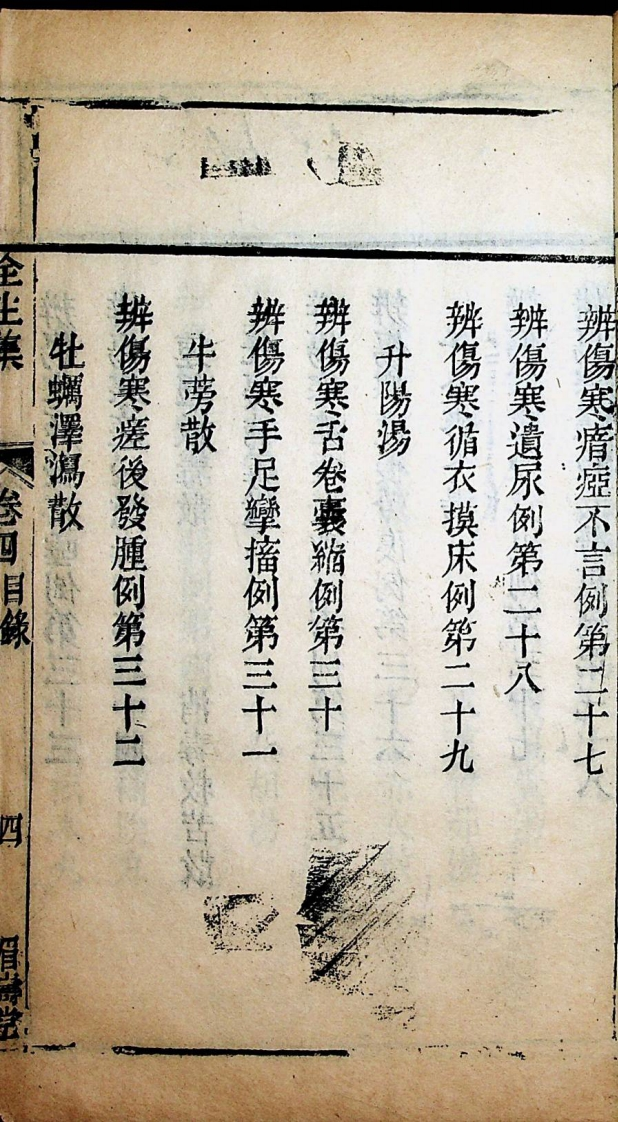 辨傷寒瘖瘂不言例第二十七
辨傷寒遺尿例第二十八
辨傷寒循衣摸床例第二十九
升陽湯
辨傷寒舌卷囊縮例第三十
辨傷寒手足攣搐例第三十一
牛蒡散
辨傷寒瘥後發腫例第三十二
牡蠣澤瀉散
全生集 卷四目錄 四